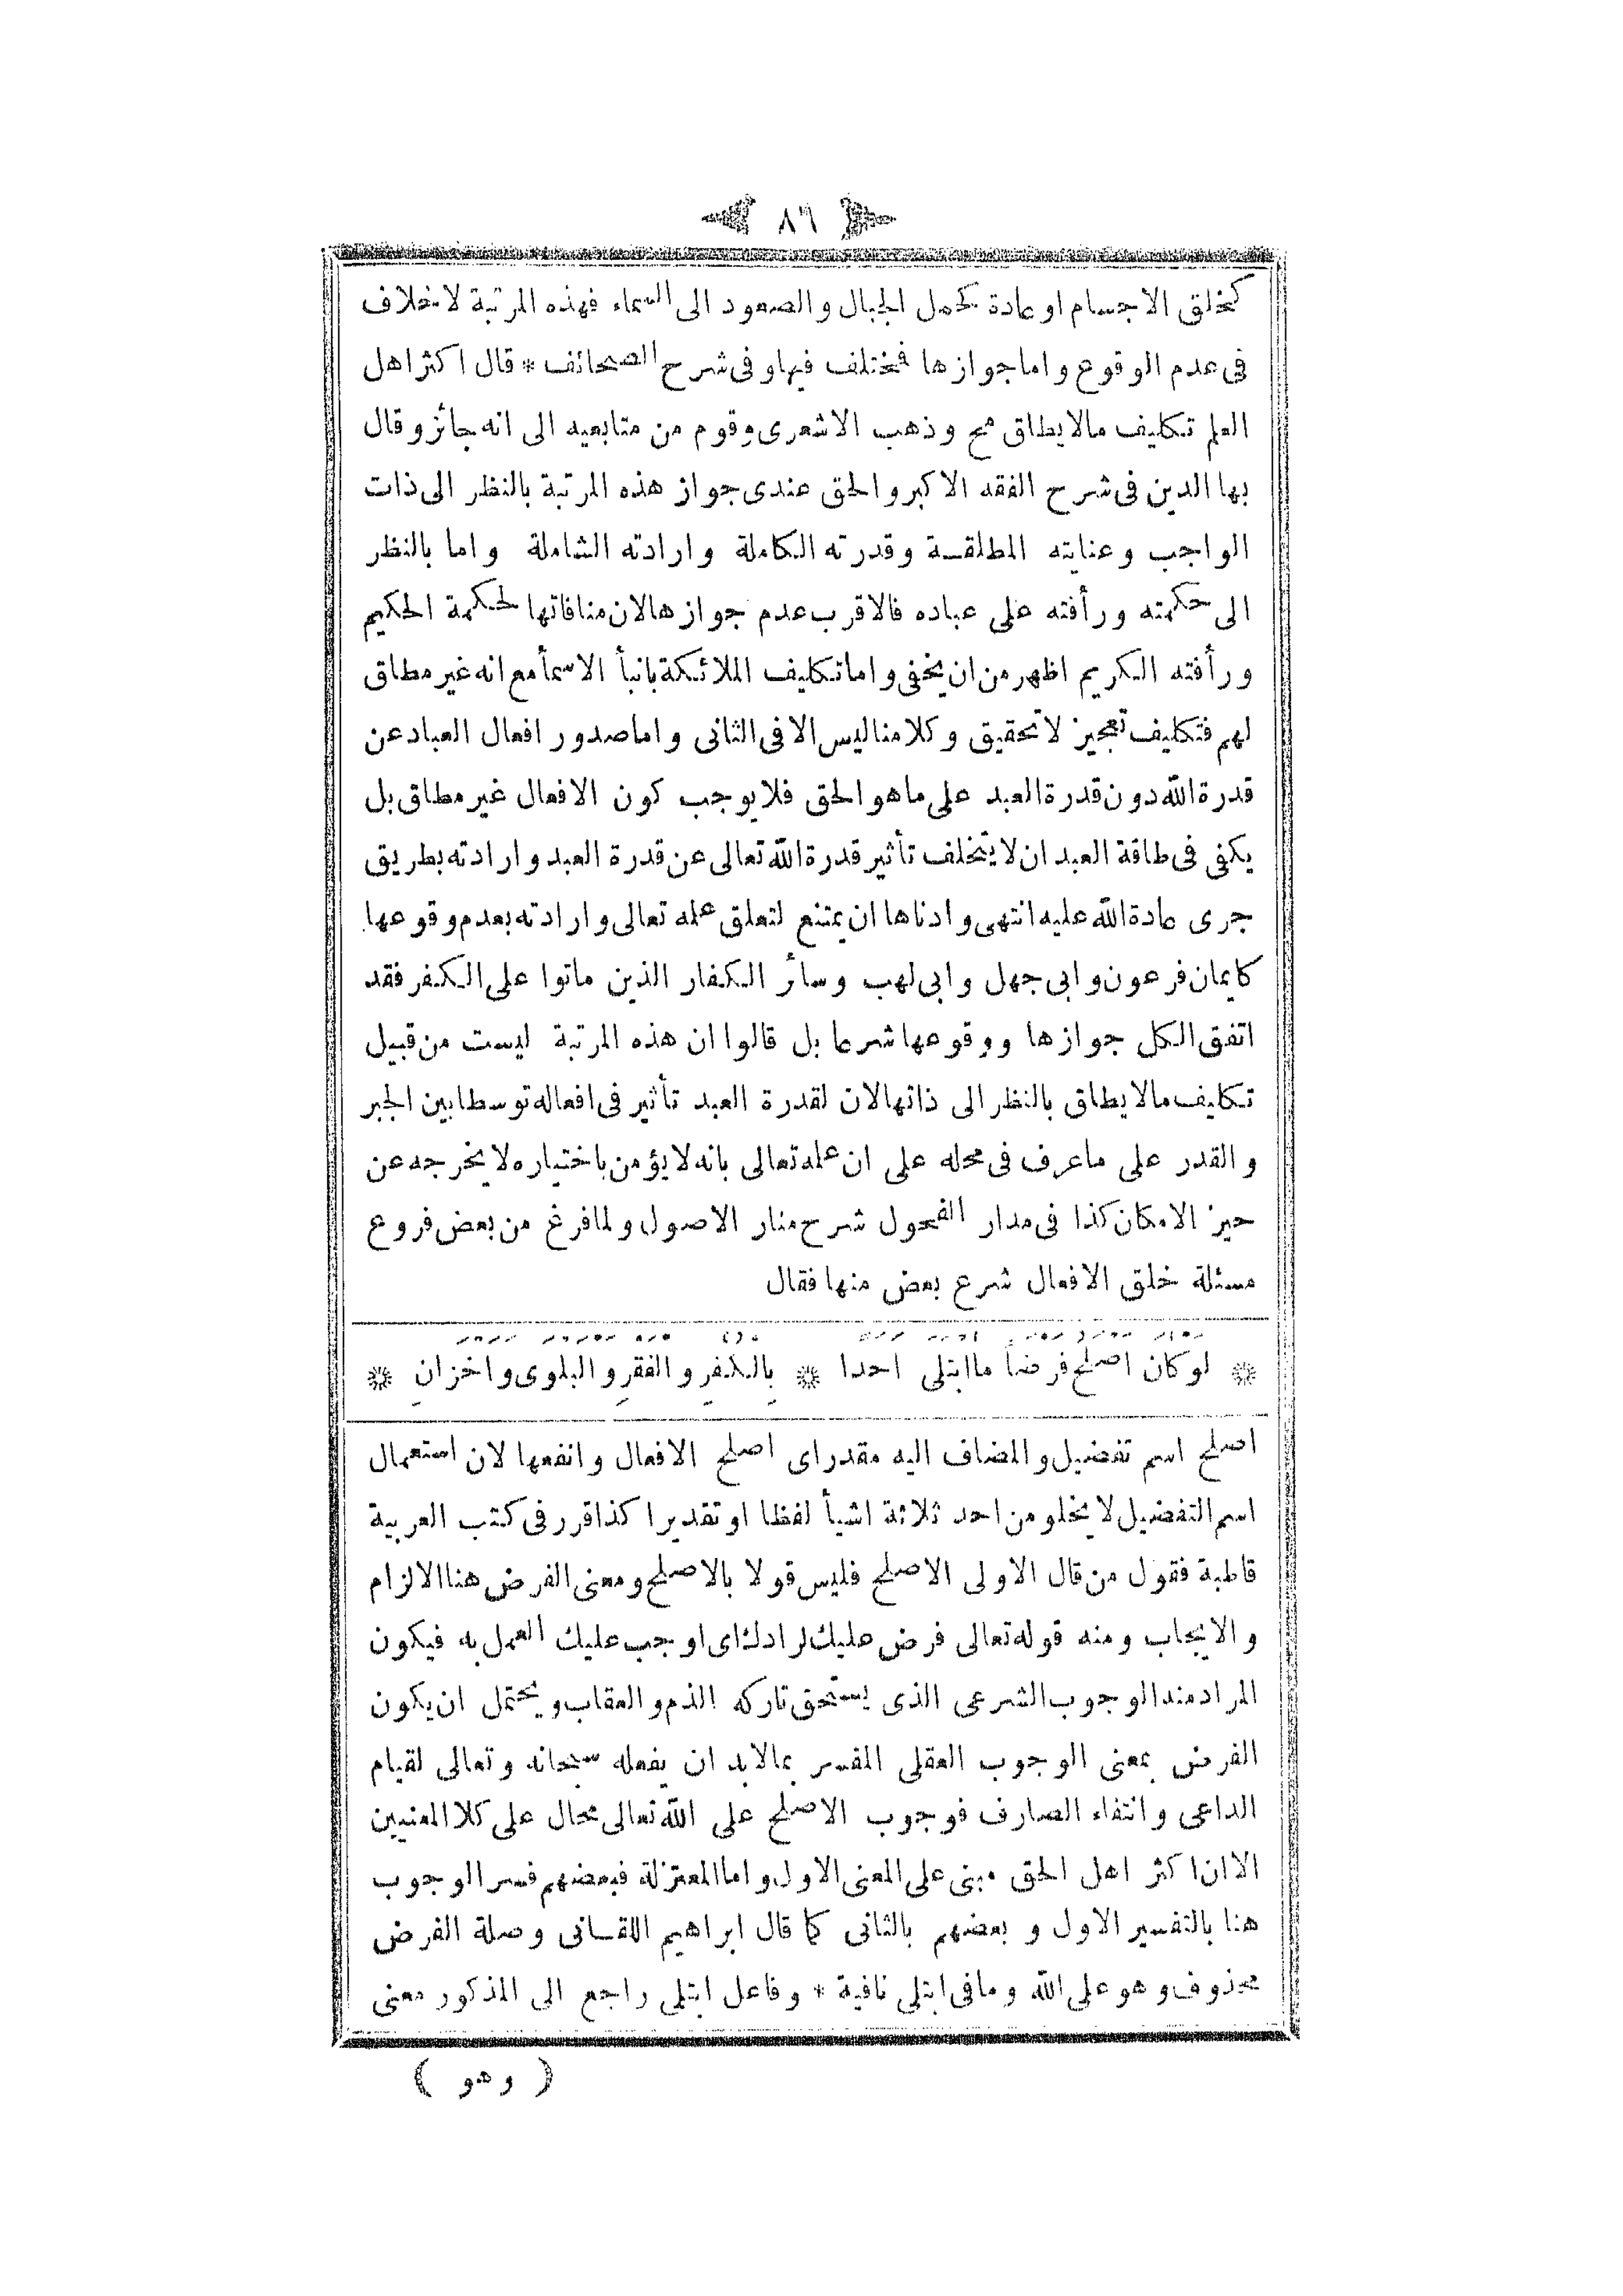 ٨٦
كخلق الاجسام او عادة كحمل الجبال والصعود الى السماء فهذه المرتبة لا خلاف
فى عدم الوقوع واما جوازها فمختلف فيها وفى شرح الصحائف * قال اكثر اهل
العلم تكليف مالايطاق مح وذهب الاشعرى وقوم من متابعيه الى انه جائز وقال
بها الدين فى شرح الفقه الاكبر والحق عندى جواز هذه المرتبة بالنظر الى ذات
الواجب وعنايته المطلقة وقدرته الكاملة وارادته الشاملة واما بالنظر
الى حكمته ورأفته على عباده فالاقرب عدم جوازها لان منافاتها لحكمة الحكيم
ورأفته الكريم اظهر من ان يخفى واما تكليف الملائكة بانبأ الاسمأ مع انه غير مطاق
لهم فتكليف تعجيز لا تحقيق وكلامنا ليس الا فى الثانى واما صدور افعال العباد عن
قدرة الله دون قدرة العبد على ماهو الحق فلا يوجب كون الافعال غير مطاق بل
يكفى فى طاقة العبد ان لا يتخلف تأثير قدرة الله تعالى عن قدرة العبد وارادته بطريق
جرى عادة الله عليه انتهى وادناها ان يمتنع لتعلق علمه تعالى وارادته بعدم وقوعها
كايمان فرعون وابى جهل وابى لهب وسائر الكفار الذين ماتوا على الكفر فقد
اتفق الكل جوازها ووقوعها شرعا بل قالوا ان هذه المرتبة ليست من قبيل
تكليف مالا يطاق بالنظر الى ذاتها لان لقدرة العبد تأثير فى افعاله توسطا بين الجبر
والقدر على ما عرف فى محله على ان علمه تعالى بانه لا يؤمن باختياره لا يخرجه عن
حيز الامكان كذا فى مدار الفحول شرح منار الاصول ولما فرغ من بعض فروع
مسئلة خلق الافعال شرع بعض منها فقال
* لو كان اصلح فرضاً ما ابتلى احدا * بالكفر والفقر والبلوى واخزان *
اصلح اسم تفضيل والمضاف اليه مقدر اى اصلح الافعال وانفعها لان استعمال
اسم التفضيل لا يخلو من احد ثلاثة اشيأ لفظا او تقديرا كذا قرر فى كتب العربية
قاطبة فقول من قال الاولى الاصلح فليس قولا بالاصلح ومعنى الفرض هنا الالزام
والايجاب ومنه قوله تعالى فرض عليك لرادك اى اوجب عليك العمل به فيكون
المراد منه الوجوب الشرعى الذى يستحق تاركه الذم والعقاب ويحتمل ان يكون
الفرض بمعنى الوجوب العقلى المفسر بمالابد ان يفعله سبحانه وتعالى لقيام
الداعى وانتفاء الصارف فوجوب الاصلح على الله تعالى محال على كلا المعنيين
الا ان اكثر اهل الحق مبنى على المعنى الاول واما المعتزلة فبعضهم فسر الوجوب
هنا بالتفسير الاول وبعضهم بالثانى كما قال ابراهيم اللقانى وصلة الفرض
محذوف وهو على الله وما فى ابتلى نافية * وفاعل ابتلى راجع الى المذكور معنى
( وهو )